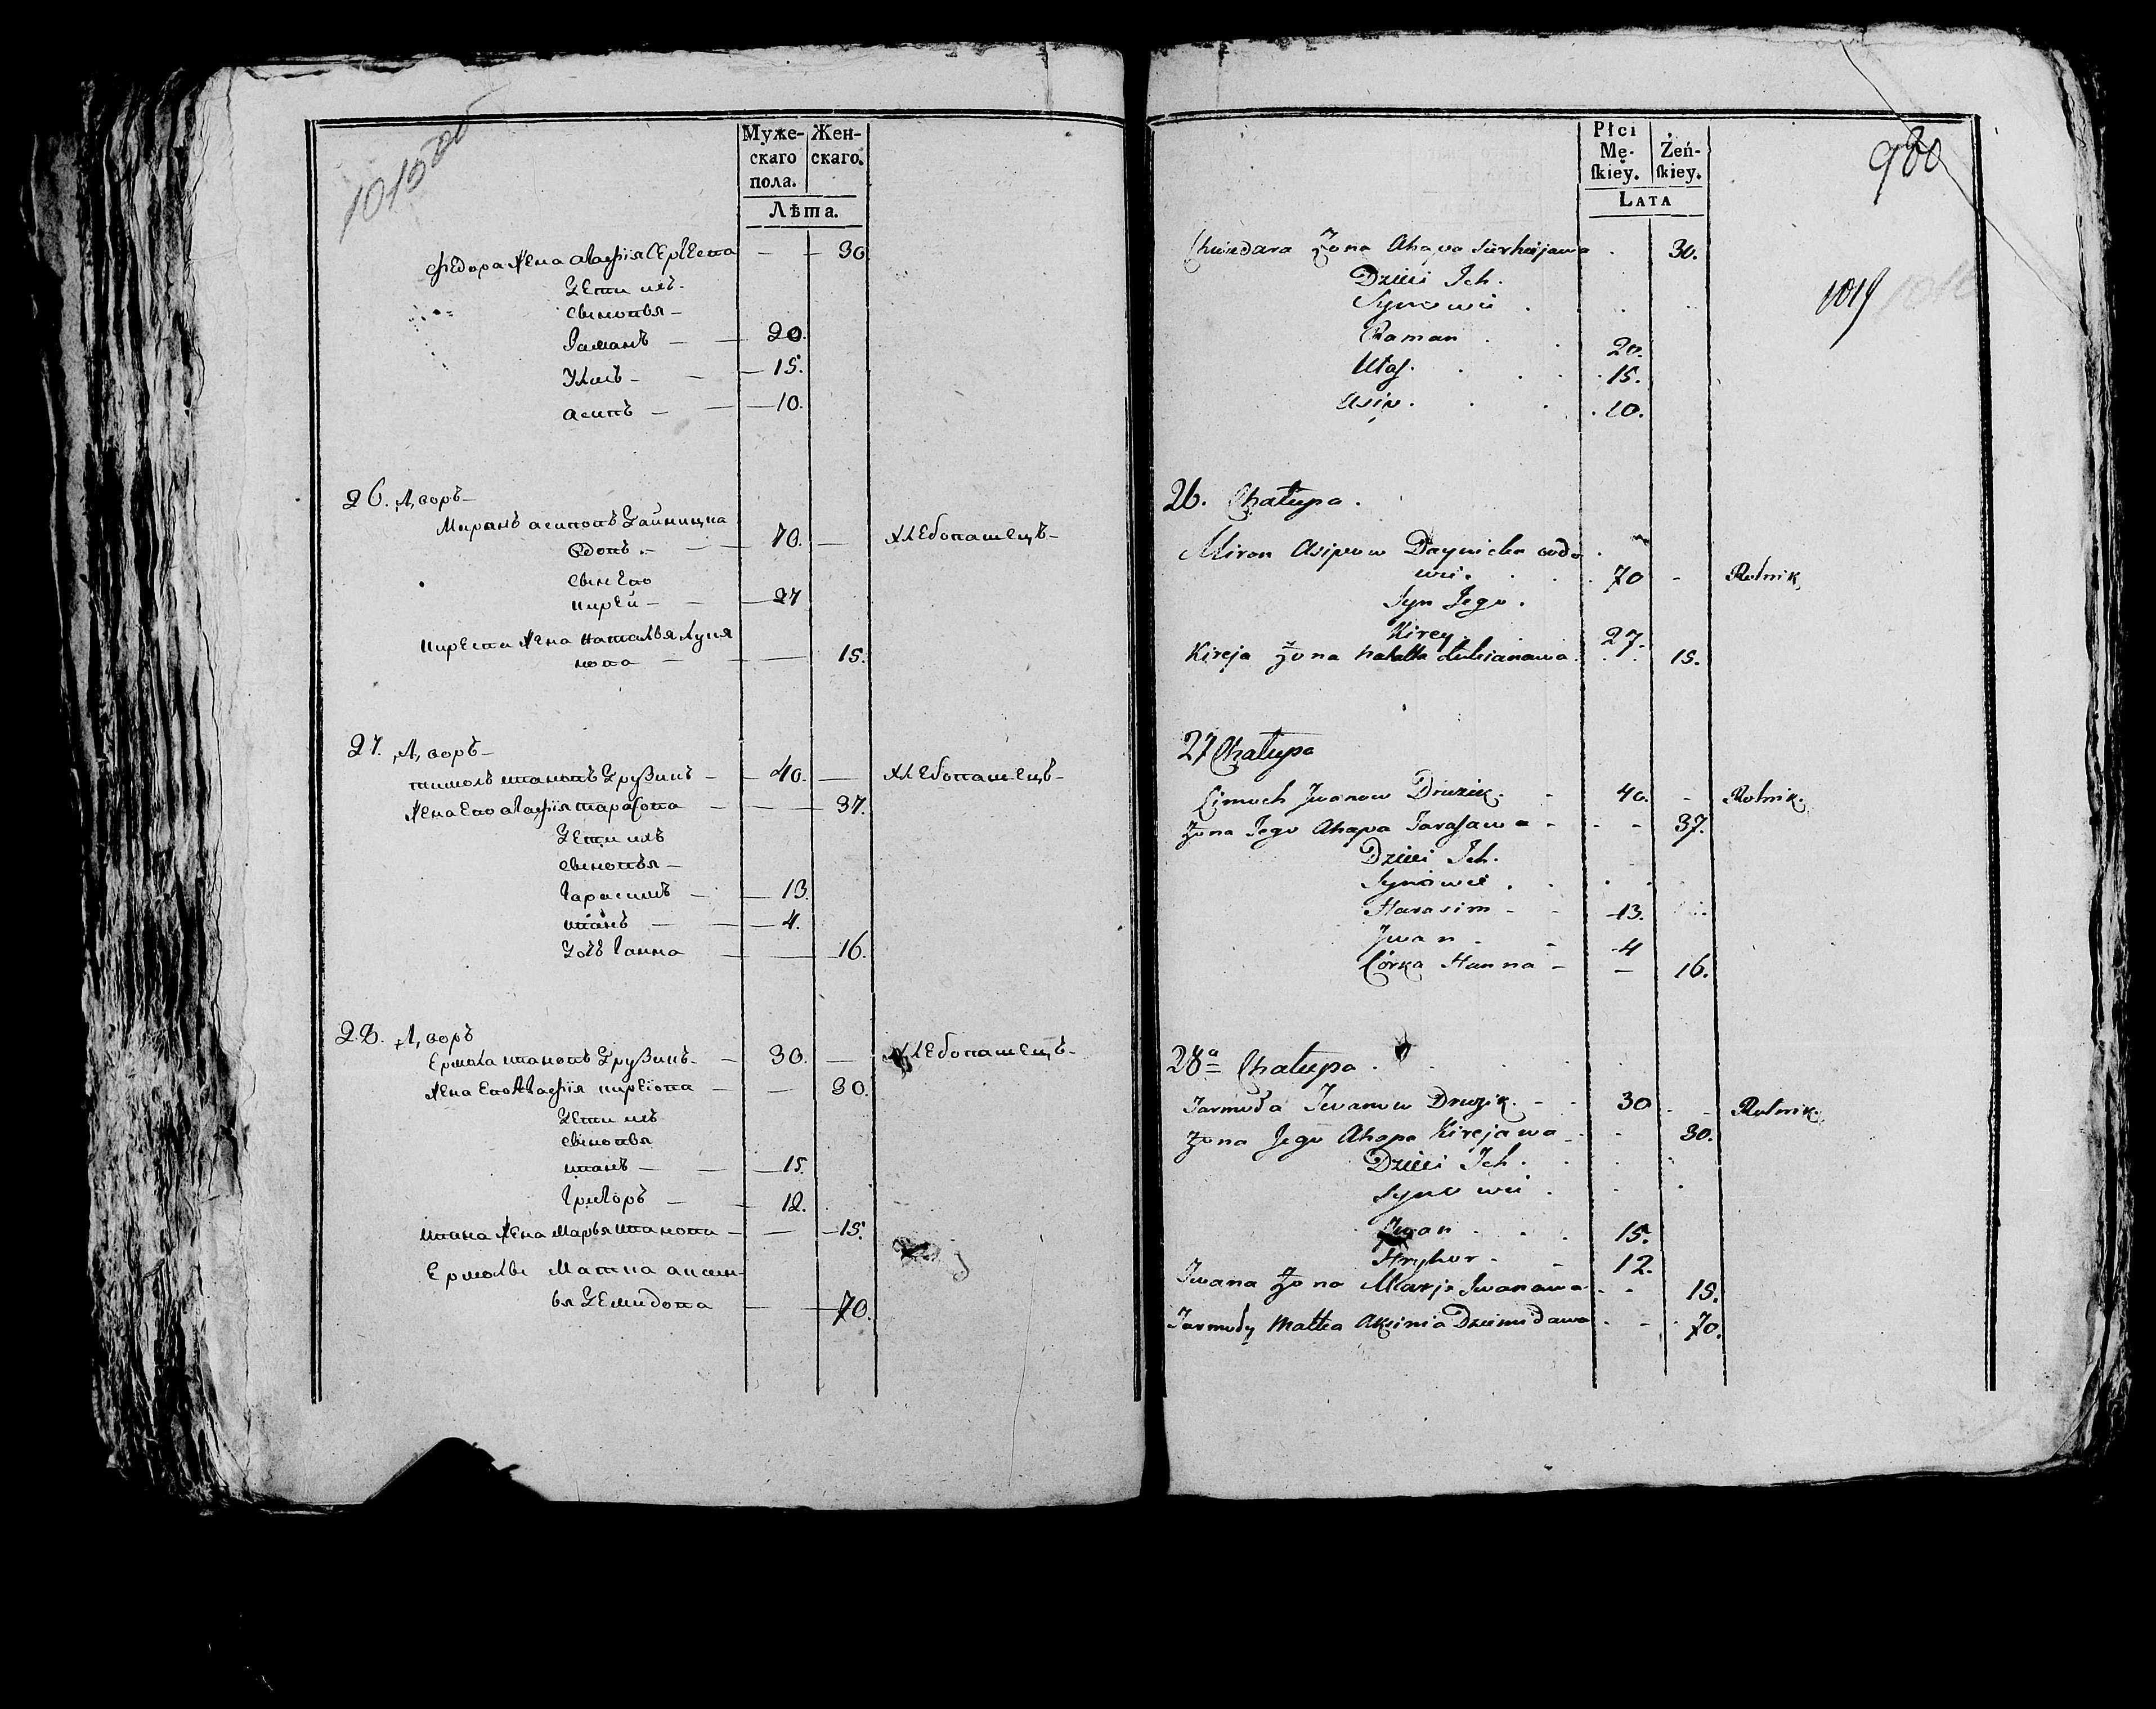 Муже-
скаго
пола.
Жен-
скаго.
Лѣта.
Федора жена агафія Сергеева — 30
дети ихъ
сыновья —
Раманъ — 20.
Улас — 15.
асипъ — 10.
26. Дворъ —
Миронъ асиповъ Дайницка
вдовъ. — 70. — хлебопашецъ —
сын его
кирей — 27
кирея жена наталья лукя
нова — 15.
27. Дворъ —
тимохъ ивановъ Друзикъ — 40. — хлебопашецъ —
жена его агафія тарасова — 37.
дети ихъ
сыновья —
гарасимъ — 13.
иванъ — 4.
дочь ганна — 16.
28. Дворъ
Ермола ивановъ Друзикъ. — 30. — хлебопашецъ —
жена его агафія киреіова — 30.
дети ихъ
сыновья
иванъ — 15.
григоръ — 12.
ивана жена марья иванова — 15.
Ермолы матка аксин-
ья демидова — 70.
Płci
Mę-
skiey.
Żeń-
skiey.
LATA
980
1019
Chwiedara Żona Ahapa Sierhiejawa . 30.
Dzieci Ich.
Synowie .
Raman . 20.
Ułas . 15.
Asip . 10.
26. Chałupa .
Miron Asipow Daynicka wdo
wie . 70 - Rolnik,
Syn Jego .
Kirey 27.
Kireja Żona Natalla Łukianawa . 15.
27 Chałupa
Cimoch Jwanow Druzik. - 40. - Rolnik.
Żona Jego Ahapa Tarasawa - - - 37.
Dzieci Ich.
Synowie .
Harasim - - 13.
Jwan - - 4
Córka Hanna - - 16.
28a Chałupa .
Jarmoła Jwanow Druzik. - - 30 - - Rolnik.
Żona Jego Ahapa Kirejawa - - 30.
Dzieci Ich .
Synowie .
Jwan . 15.
Hryhor - - 12.
Jwana Żona Marja Jwanawa - - 15.
Jarmoły Matka Aksinia Dziemidawa . - . 70.